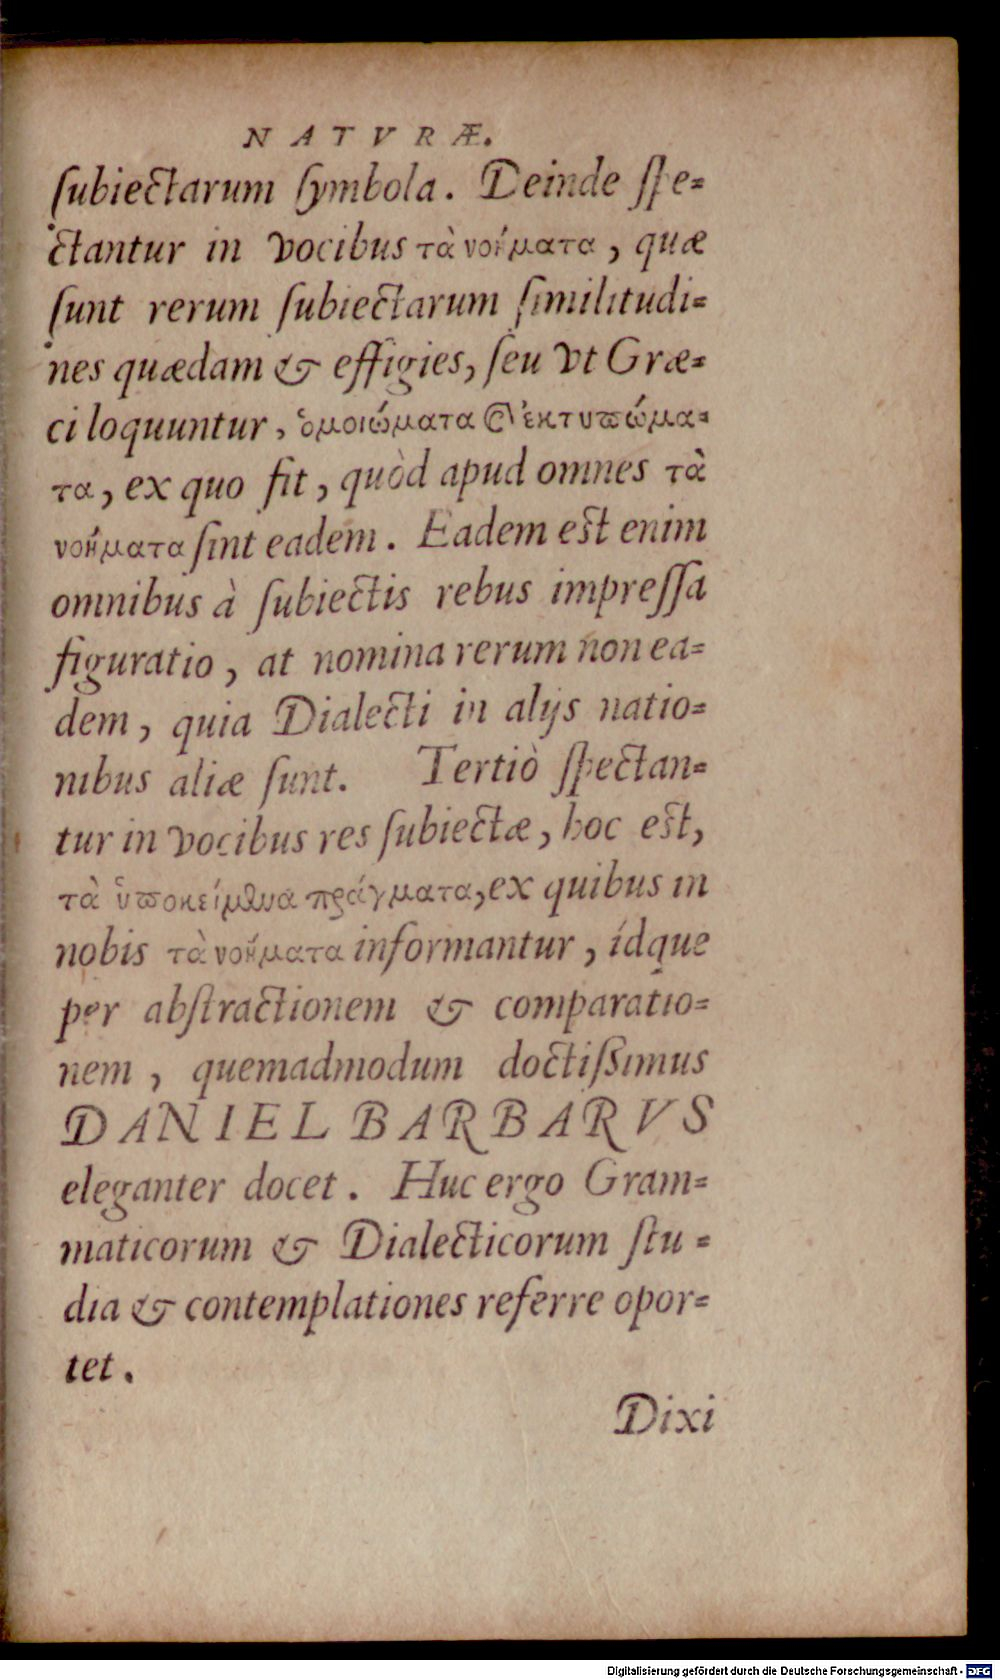 NATVRÆ.
ſubiectarum ſymbola. Deinde ſpe-
ctantur in vocibus τὰ νοήματα, quæ
ſunt rerum ſubiectarum ſimilitudi-
nes quædam & effigies, ſeu vt Græ-
ci loquuntur, ὁμοιώματα & ἐκτυπώμα-
τα, ex quo fit, quòd apud omnes τὰ
νοήματα ſint eadem. Eadem est enim
omnibus à ſubiectis rebus impreſſa
figuratio, at nomina rerum non ea-
dem, quia Dialecti in alijs natio-
nibus aliæ ſunt. Tertiò ſpectan-
tur in vocibus res ſubiectæ, hoc est,
τὰ ὑποκείμενα πράγματα, ex quibus in
nobis τὰ νοήματα informantur, ídque
per abſtractionem & comparatio-
nem, quemadmodum doctiſsimus
DANIEL BARBARVS
eleganter docet. Huc ergo Gram-
maticorum & Dialecticorum ſtu-
dia & contemplationes referre opor-
tet.
Dixi
Digitalisierung gefördert durch die Deutsche Forschungsgemeinschaft - DFG